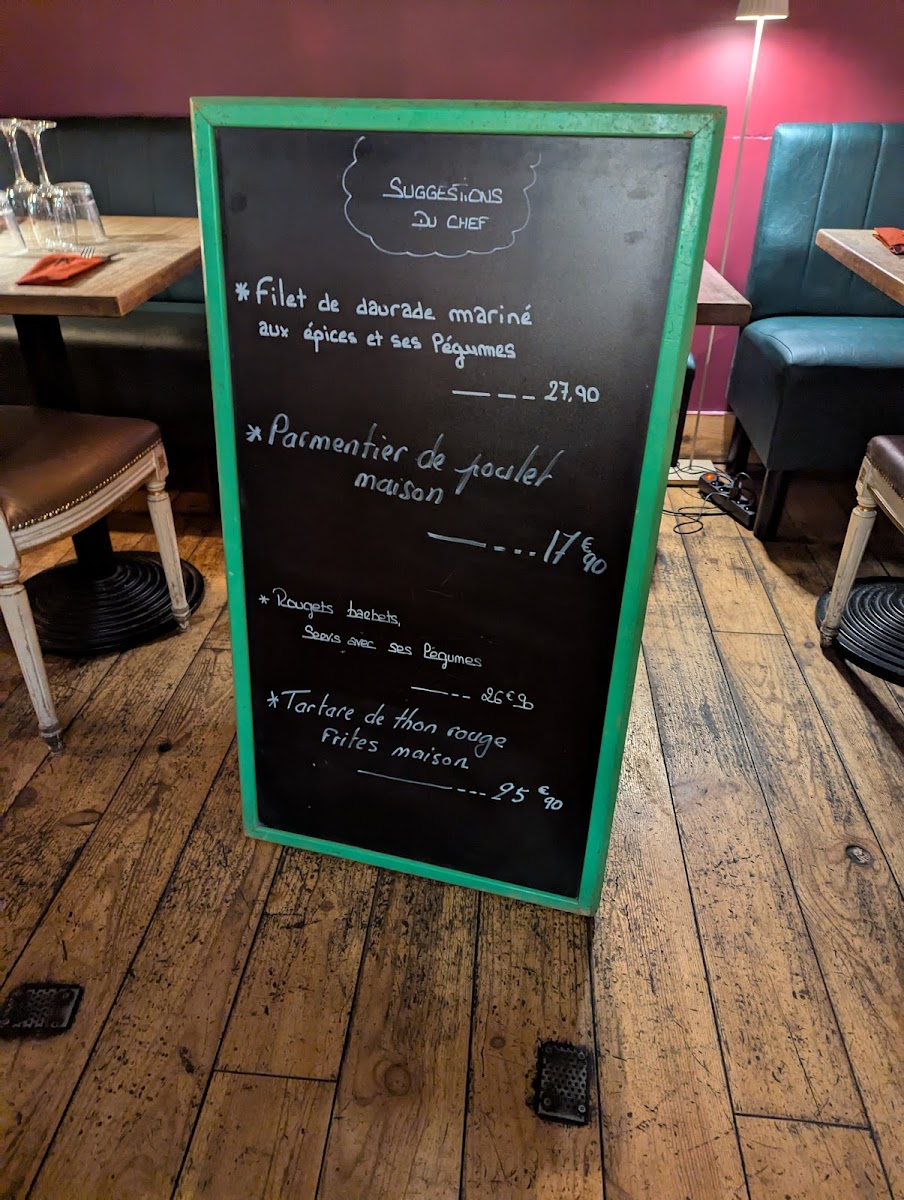 SUGGESTIONS
DU CHEF
* Filet de daurade mariné
aux épices et ses légumes
——— 27,90
* Parmentier de poulet
maison
——— ... 17€90
* Rougets barbets,
Servis avec ses légumes
——--- 26€9
* Tartare de thon rouge
Frites maison
———--- 25€90